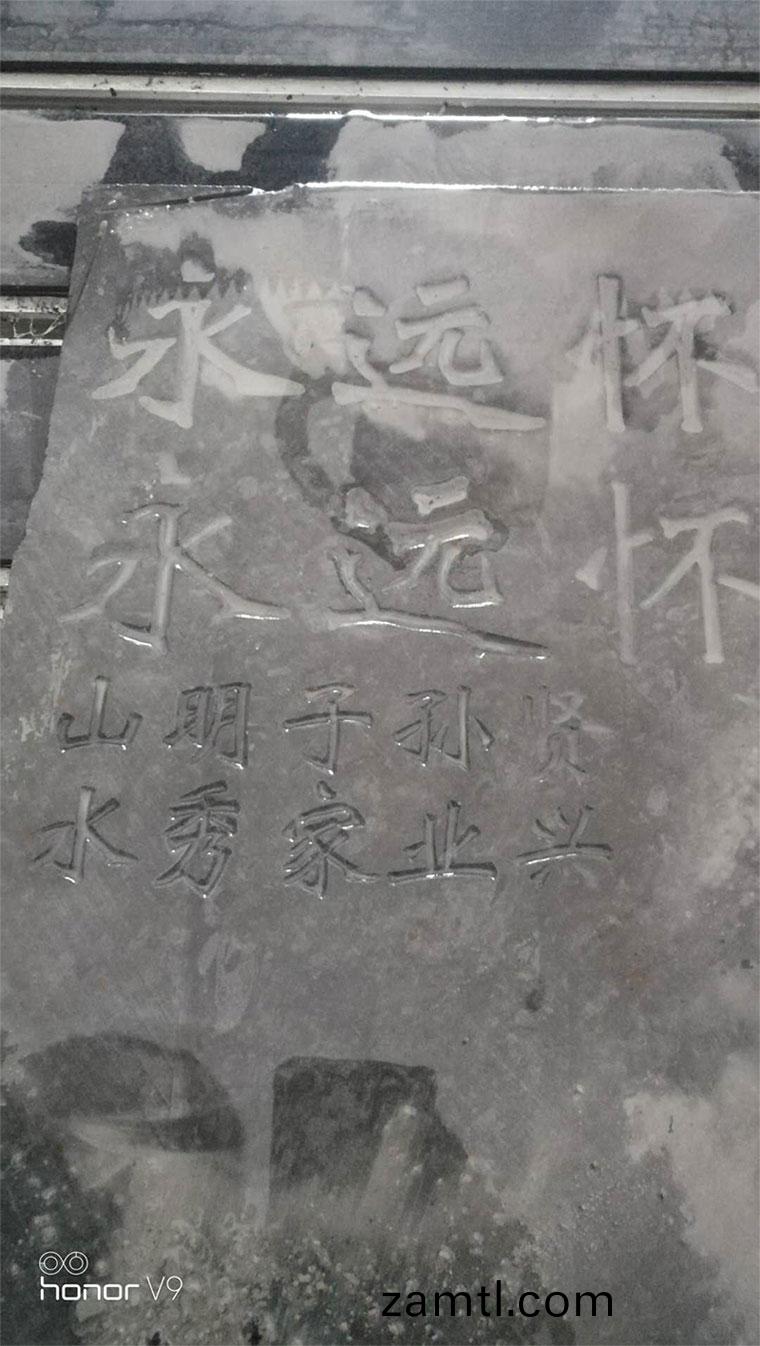 永远怀
永远怀
山明子孙贤
水秀家业兴
honor V9
zamtl.com